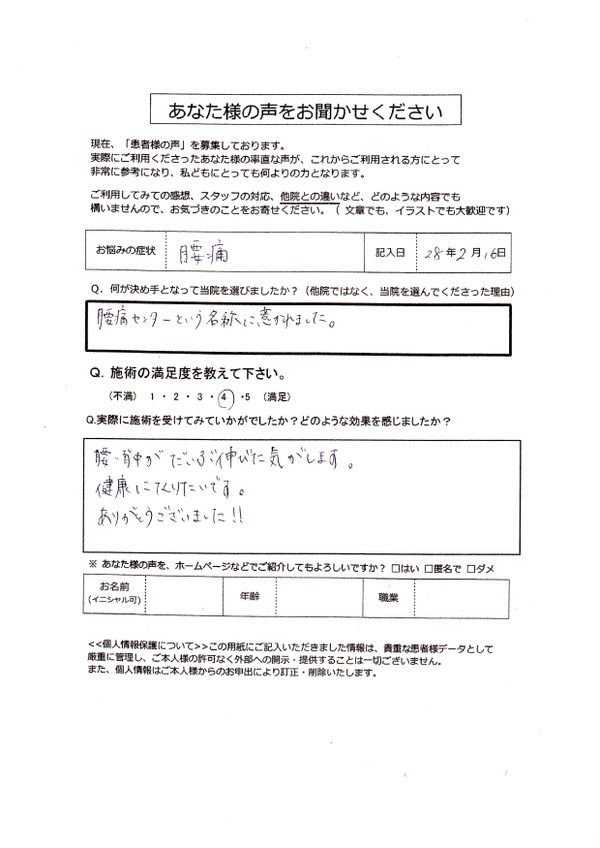 あなた様の声をお聞かせください
現在、「患者様の声」を募集しております。
実際にご利用くださったあなた様の率直な声が、これからご利用される方にとって
非常に参考になり、私どもにとっても何よりの力となります。
ご利用してみての感想、スタッフの対応、他院との違いなど、どのような内容でも
構いませんので、お気づきのことをお寄せください。( 文章でも、イラストでも大歓迎です)
お悩みの症状 腰痛 記入日 28年2月16日
Q. 何が決め手となって当院を選びましたか?(他院ではなく、当院を選んでくださった理由)
腰痛センターという名称に惹かれました。
Q. 施術の満足度を教えて下さい。
(不満) 1・2・3・4・5 (満足)
Q.実際に施術を受けてみていかがでしたか?どのような効果を感じましたか?
腰・背中がだいぶ伸びた気がします。
健康になりたいです。
ありがとうございました!!
※ あなた様の声を、ホームページなどでご紹介してもよろしいですか? □はい □匿名で □ダメ
お名前 年齢 職業
(イニシャル可)
<<個人情報保護について>>この用紙にご記入いただきました情報は、貴重な患者様データとして
厳重に管理し、ご本人様の許可なく外部への開示・提供することは一切ございません。
また、個人情報はご本人様からのお申出により訂正・削除いたします。